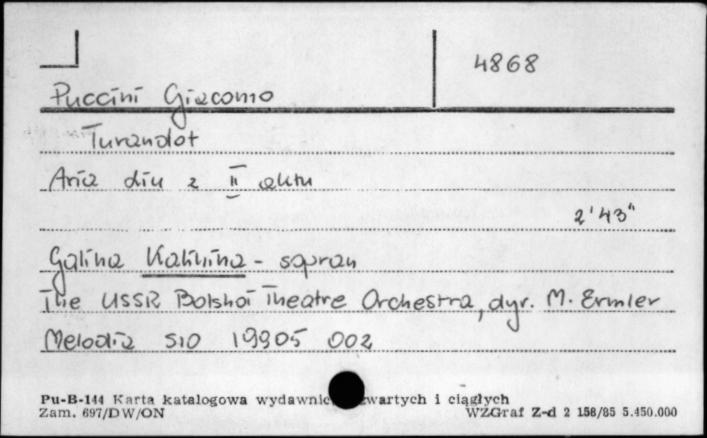 4868
Puccini Giacomo
Turandot
Aria Liu z II aktu
2'43"
Galina Kalinina - sopran
The USSR Bolshoi Theatre Orchestra, dyr. M. Ermler
Melodia S10 19905 002
Pu-B-144 Karta katalogowa wydawnic zwartych i ciągłych
Zam. 697/DW/ON WZGraf Z-d 2 158/85 5.450.000